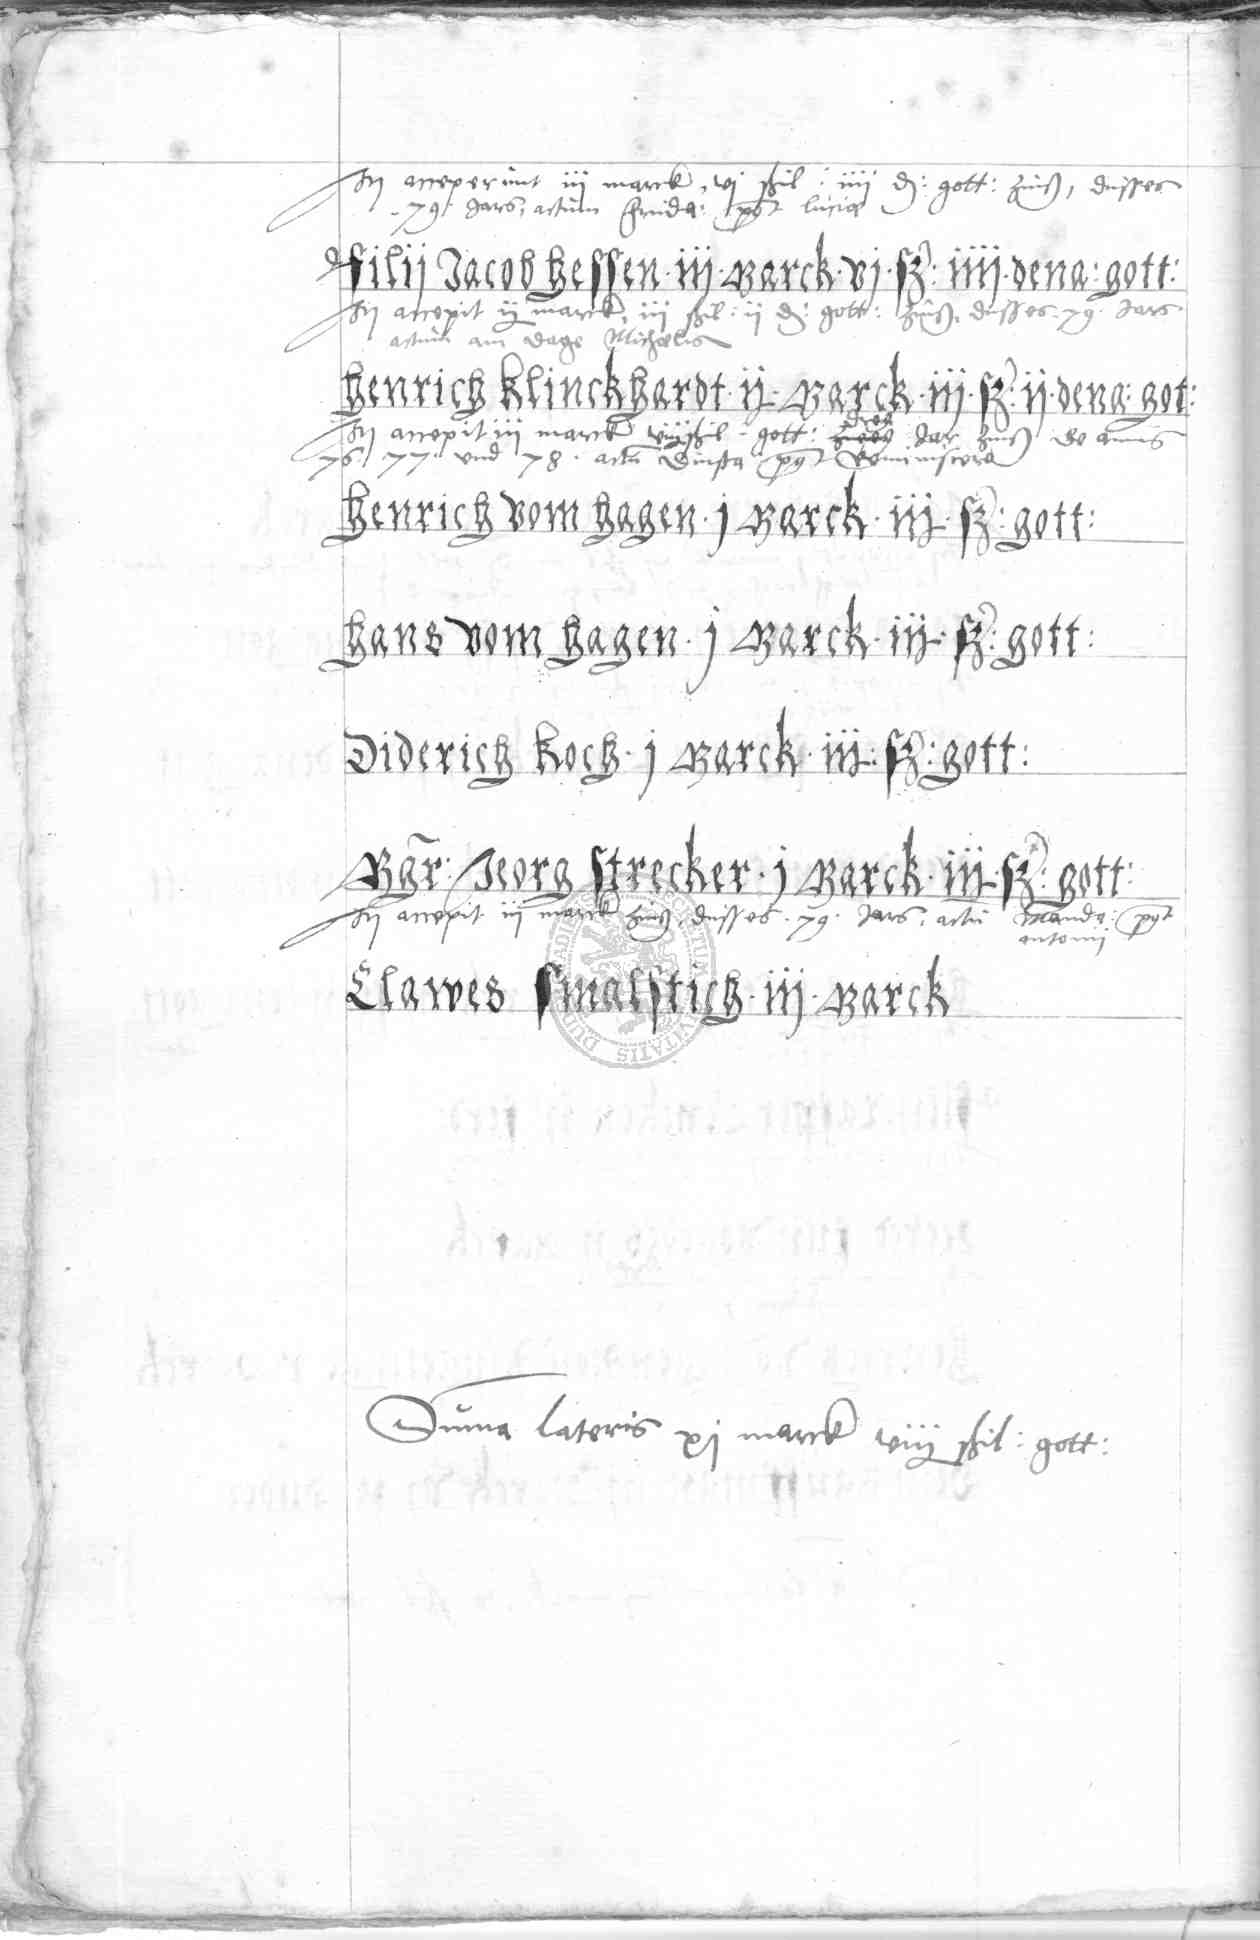 Hij acceperunt iij marck, vj schil: iiij d: gott: zinß, dusses
79. Jars, actum Frida: post Lucia
Filij Jacob Hessen · iij · Marck · vj · sz: iiij · dena: gott:
Hij accepit ij marck, iij schil: ij d: gott: zinß, dusses. 79. Jars
actum am dage Michaelis
Henrich Klinckhardt · ij · Marck · iij · sz: ij · dena: got:
drey
Hij accepit iij marck viiij schil: gott: Jar zinß de annis
76. 77. und 78. actum Dinsta post Reminiscere
Henrich vom Hagen · j Marck · iij · sz: gott:
Hans vom Hagen · j Marck · iij · sz: gott:
Diderich Koch · j Marck · iij · sz: gott:
Mgr: Jeorg Strecker · j Marck · iij · sz: gott:
Hij accepit iij marck zinß, dusses. 79. Jars, actu Manda: post
antonij
Clawes Smalstich · iij · Marck
Suma lateris xj marck viiij schil: gott: